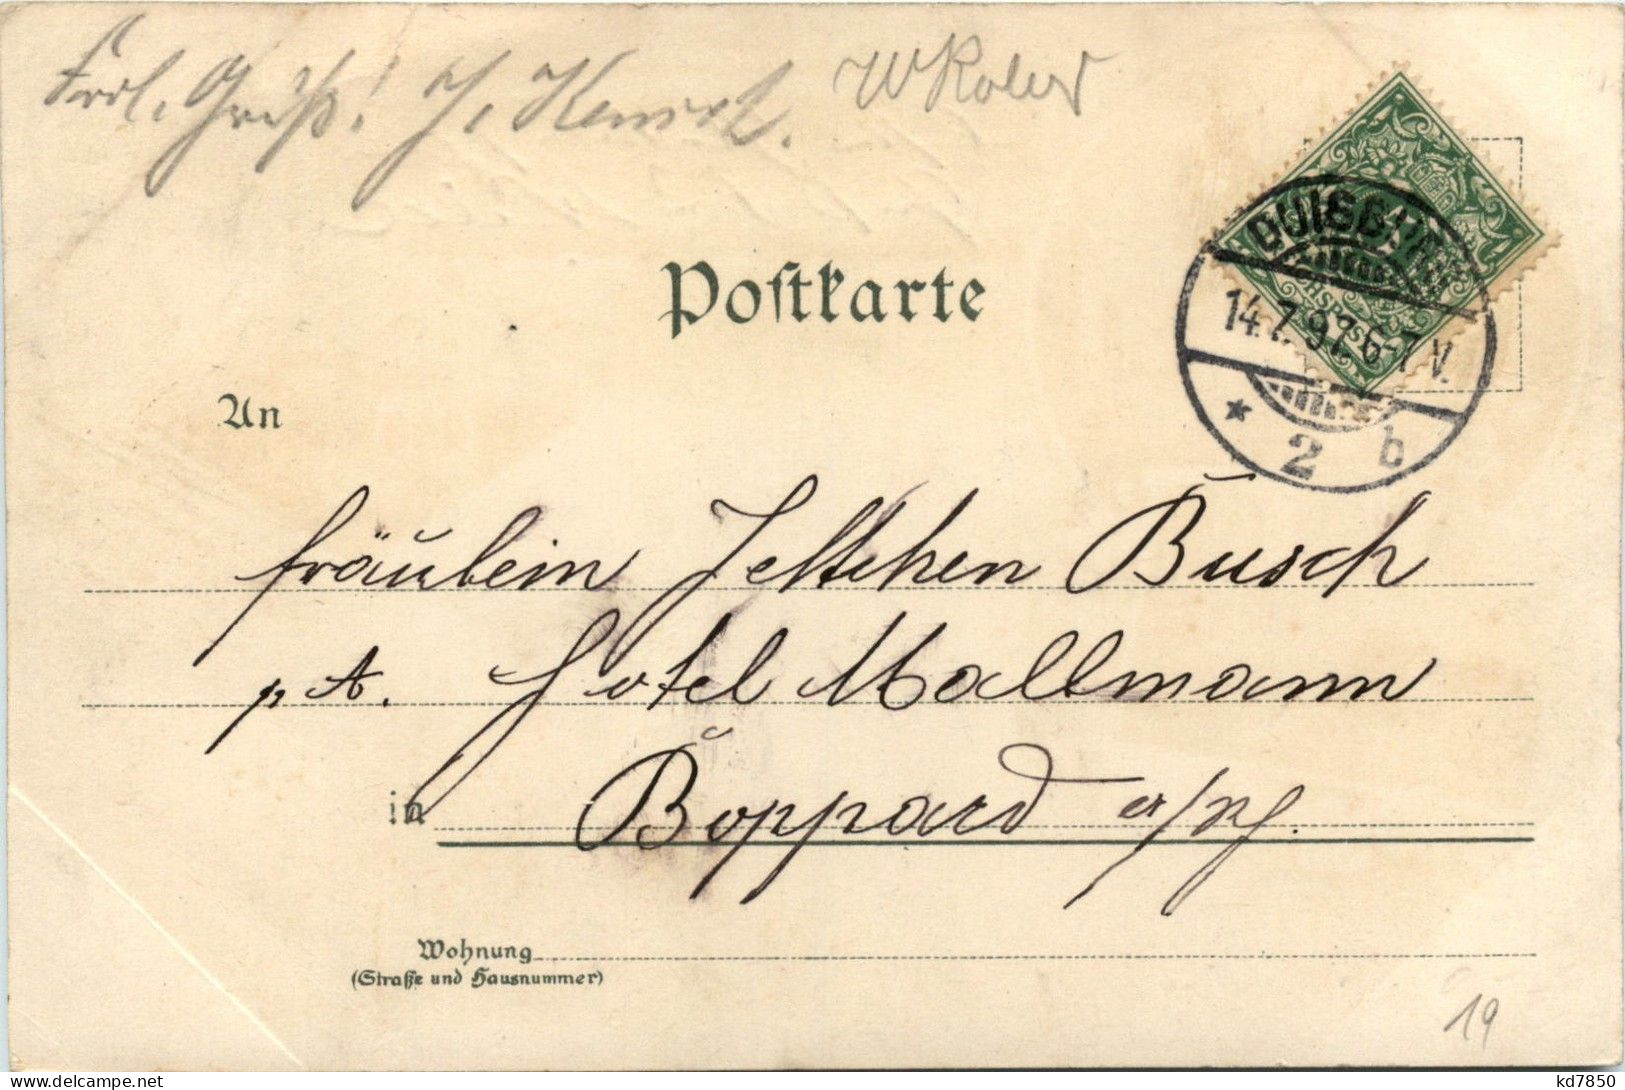 Frdl. Gruß! J.
Postkarte
DUISBURG
14.7.97.6-7V.
* 2 b
An
Fräulein Jettchen Busch
p. A. Hotel Mallmann
in Boppard a/Rh.
Wohnung
(Straße und Hausnummer)
19
kd7850